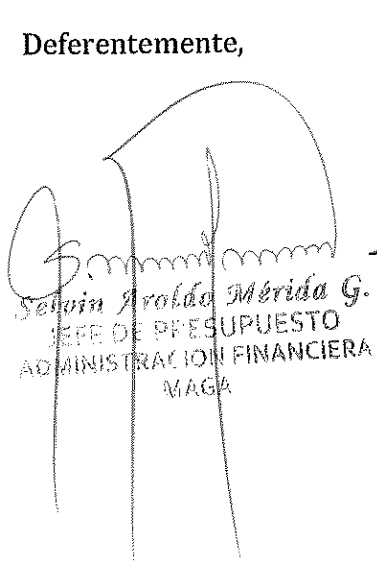 Deferentemente,
Selvin Aroldo Mérida G.
JEFE DE PRESUPUESTO
ADMINISTRACION FINANCIERA
MAGA